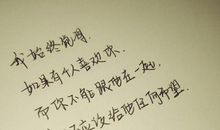 我始终觉得.
如果有个人喜欢你.
而你不能跟他在一起.
不应该给他任何希望